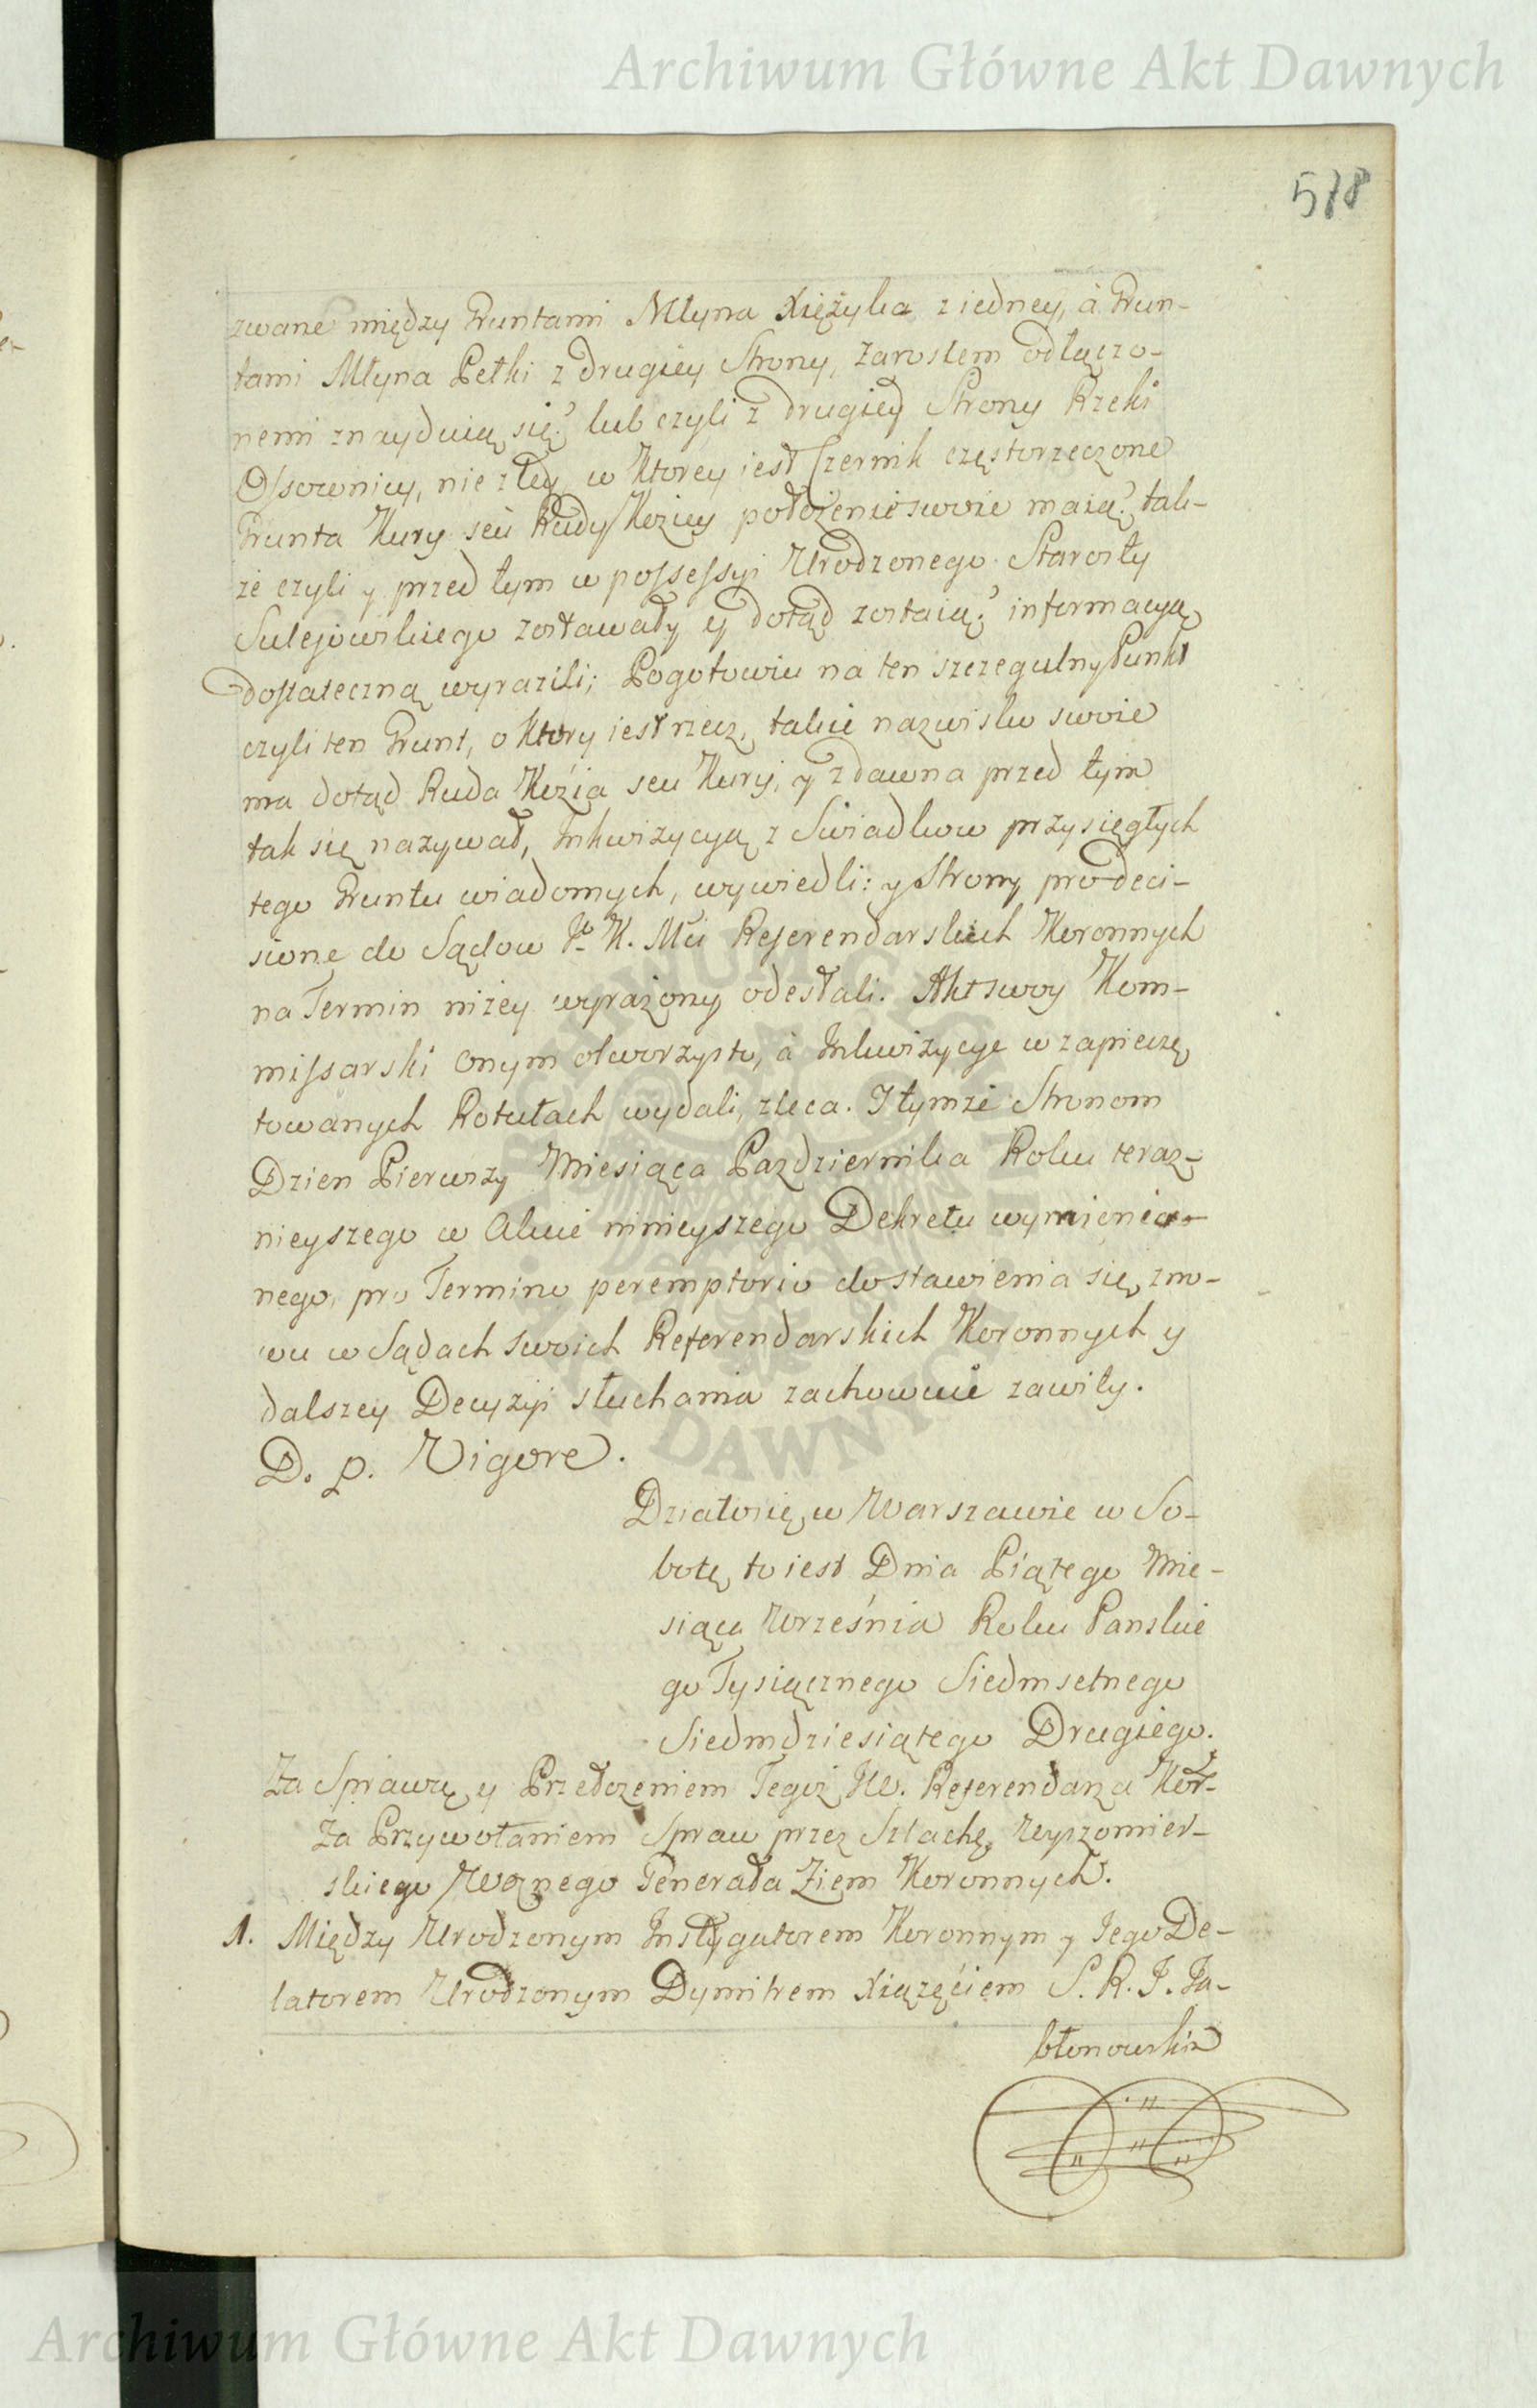 Archiwum Główne Akt Dawnych
578
zwane między Gruntami Młyna Xiężyka z iedney, à Grun-
tami Młyna Pełki z drugiey Strony, Zarostem odłączo-
nemi znayduią się? lub czyli z drugiey Strony Rzeki
Ossownicy, nie z tey w ktorey iest Czernik częstorzeczone
Grunta Kury seù Rudy Koziey położenie swoie maią? tak-
że czyli y przed tym w possessyi Urodzonego Starosty
Sulejowskiego zostawały y dotąd zostaią? informacyą
dostateczną wyrazili; Pogotowiu na ten szczegulny Punkt
czyli ten Grunt, o ktory iest rzecz, takie nazwisko swoie
ma dotąd Ruda Kozia seu Kury, y zdawna przed tym
tak się nazywał, Inkwizycyą z Swiadkow przysięgłych
tego Gruntu wiadomych, wywiedli: y Strony pro deci-
sione do Sądow Jo K. Mci Referendarskich Koronnych
na Termin niżey wyrażony odesłali. Akt swoy Kom-
missarski onym otworzysto, à Inkwizycye w zapieczę
towanych Rotułach wydali, zleca. I tymże Stronom
Dzien Pierwszy Miesiąca Pazdziernika Roku teraz-
nieyszego w Akcie ninieyszego Dekretu wymienio-
nego, pro Termino peremptorio do stawienia się zno-
wu w Sądach swoich Referendarskich Koronnych y
dalszey Decyzyi słuchania zachowuie zawity.
D. p. Vigore.
Działo się w Warszawie w So-
botę to iest Dnia Piątego Mie-
siąca Września Roku Panskie
go Tysiącznego Siedmsetnego
Siedmdziesiątego Drugiego.
Za Sprawą y Przełożeniem Tegoż JW. Referendarza Kor-
Za Przywołaniem Spraw przez Szlachę. Wyszomier-
skiego Woznego Generała Ziem Koronnych.
1. Między Urodzonym Instygatorem Koronnym y Jego De-
latorem Urodzonym Dymitrem Xiążęciem S. R. J. Ja-
błonowskim
Archiwum Główne Akt Dawnych